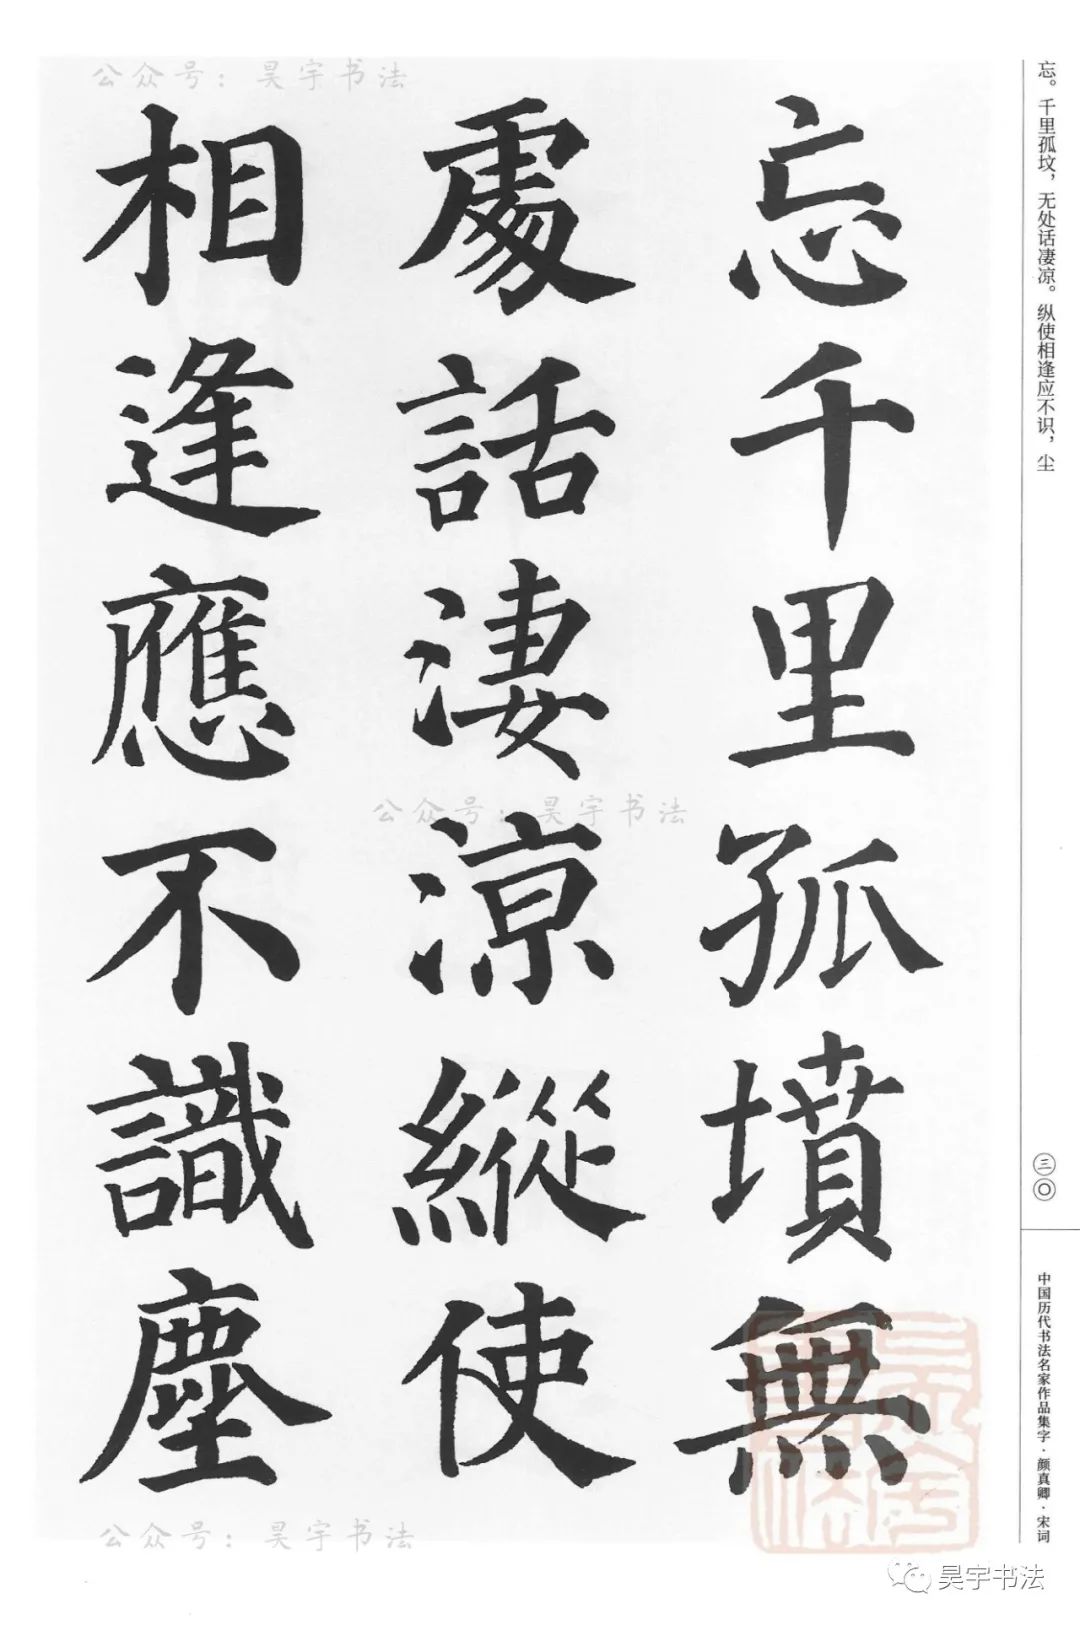 忘千里孤墳無
處話淒涼縱使
相逢應不識塵
忘。千里孤坟，无处话凄凉。纵使相逢应不识，尘
三〇
中国历代书法名家作品集字·颜真卿·宋词
公众号：昊宇书法
公众号：昊宇书法
公众号：昊宇书法
昊宇书法